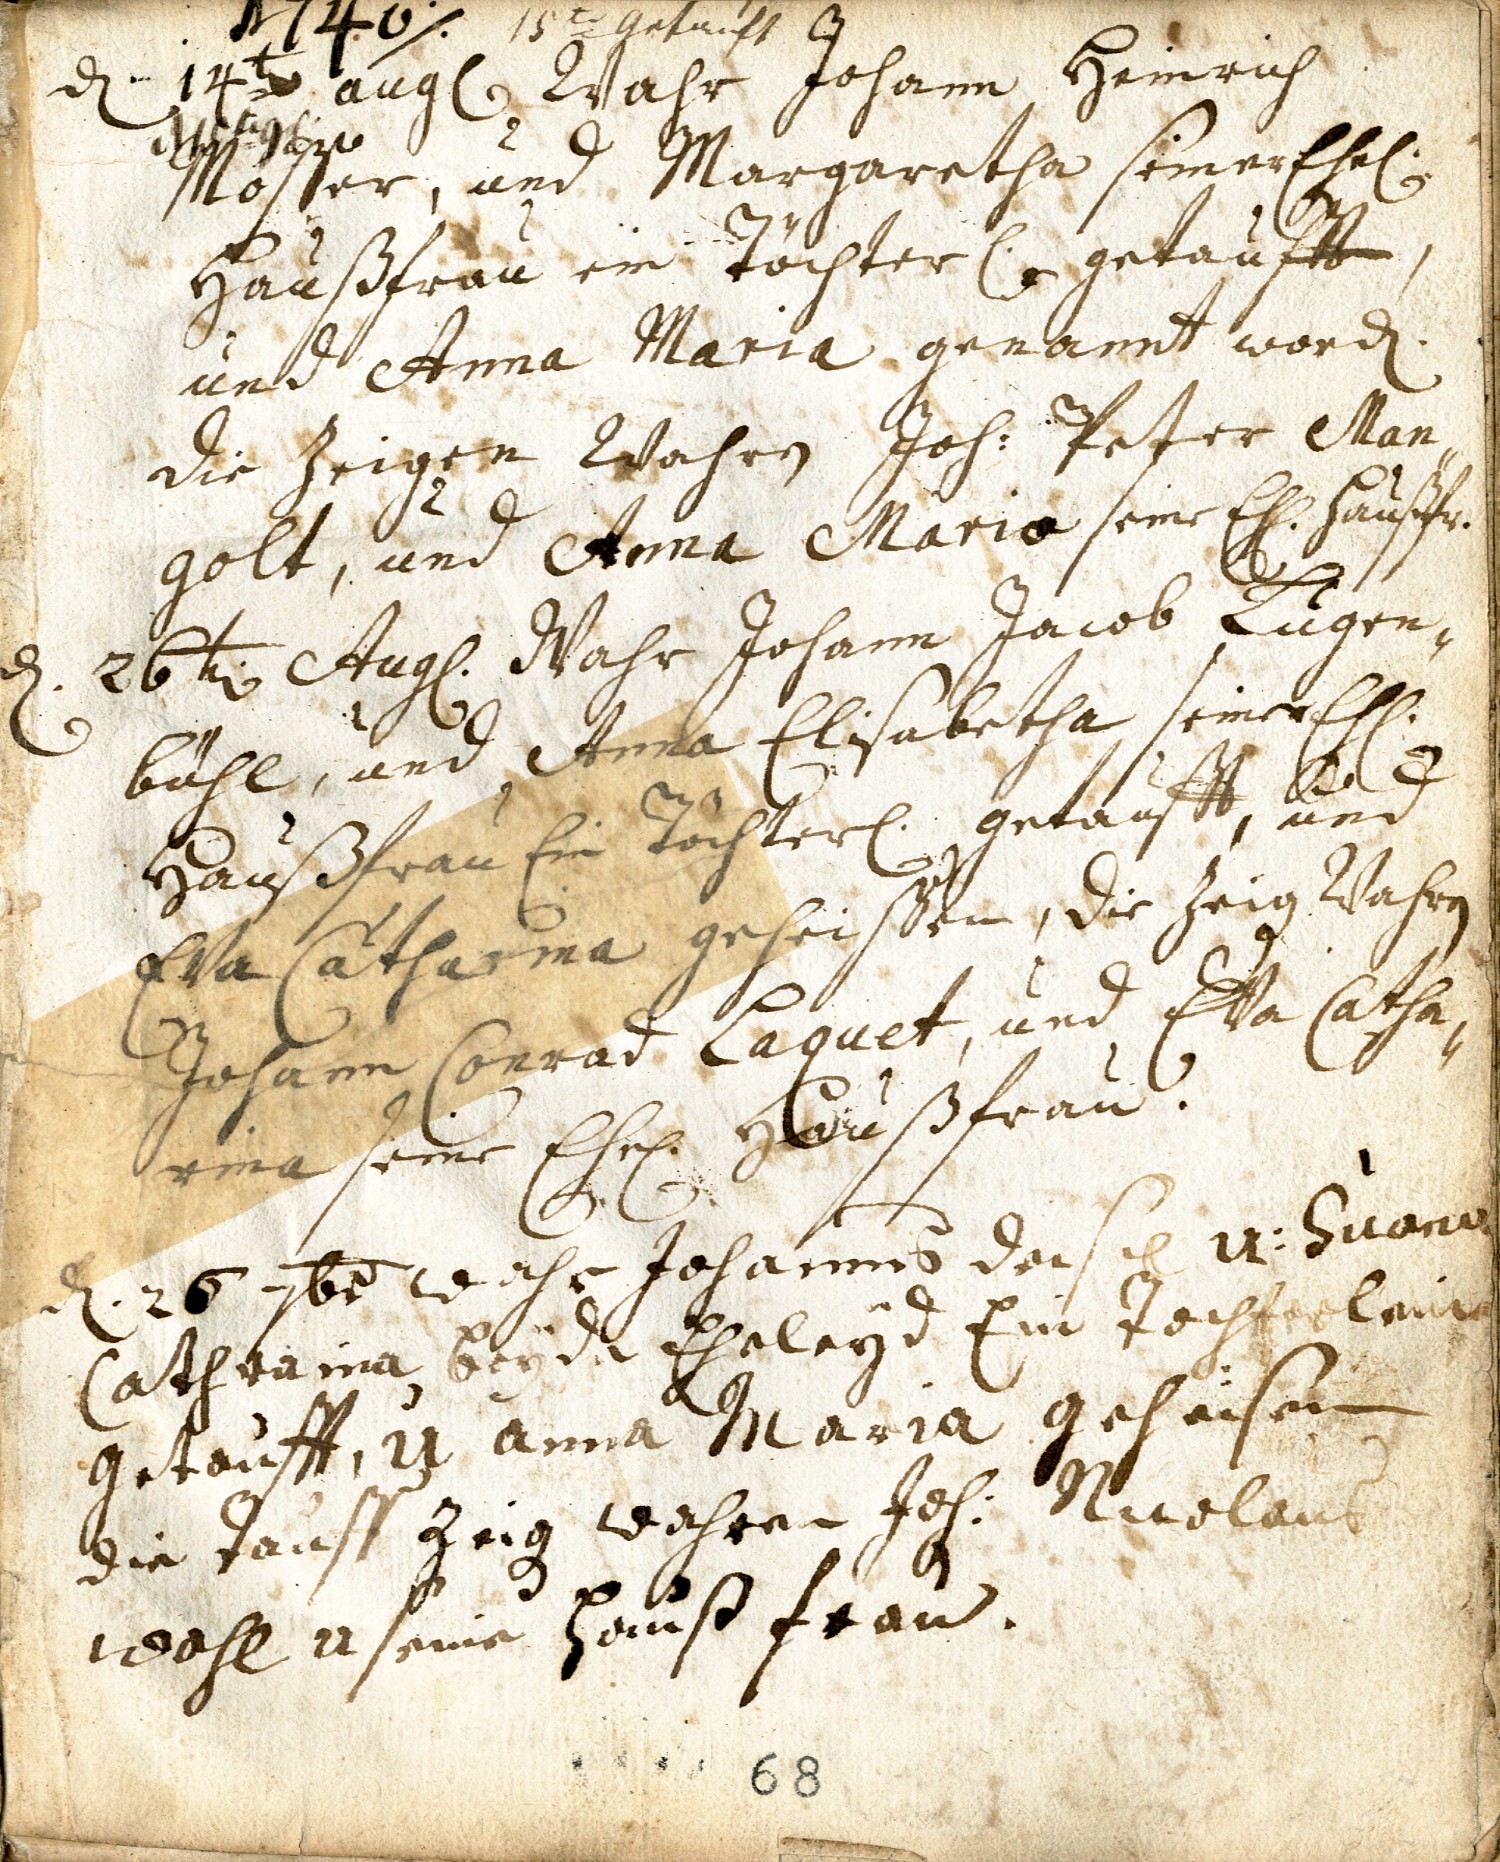 A 1740/. 15t getauft
d. 14t augl Wahr Johann Heinrich
Mosser, und Margaretha seiner Ehel.
Haußfrau ein Töchterl. getaufft,
und Anna Maria genannt word.
die Zeigen Wahrn Joh: Peter Man„
golt, und Anna Maria seine Ehl. Haußfr.
d. 26t Augl. Wahr Johann Jacob Lugen„
bühl, und Anna Elisabetha seiner Ehl.
Haußfrau Ein Töchterl. getaufft, und
Eva Catharina geheissen, die Zeig Wahrn
Johann Conrad Laquet, und Eva Catha„
rina seine Ehel. Haußfrau.
d. 26 7br wahr Johannes u:
Cathraina beyde Eheleyd Ein Techterlein
getaufft, u anna Maria geheisen
die tauff Zeig wahren Joh: Nicolaus
wahl u seine Hauß frau.
68